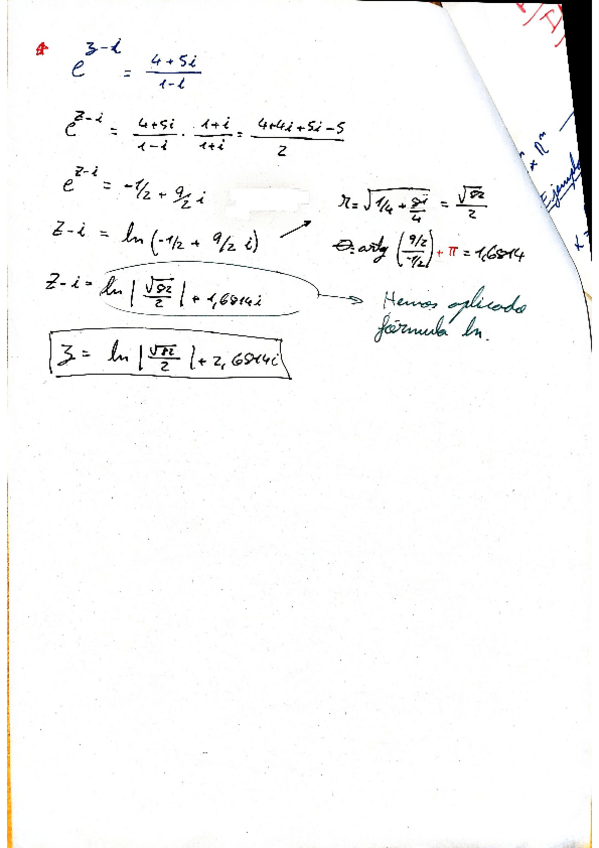 e^{z-i} = \frac{4+5i}{1-i}
e^{z-i} = \frac{4+5i}{1-i} · \frac{1+i}{1+i} = \frac{4+4i+5i-5}{2}
e^{z-i} = -1/2 + 9/2 i
r = \sqrt{1/4 + \frac{81}{4}} = \frac{\sqrt{82}}{2}
z-i = ln (-1/2 + 9/2 i)
θ = artg (\frac{9/2}{-1/2}) + π = 1,6814
z-i = ln |\frac{\sqrt{82}}{2}| + 1,6814i
Hemos aplicado
fórmula ln.
z = ln |\frac{\sqrt{82}}{2}| + 2,6814i
R^n
Ejemplo